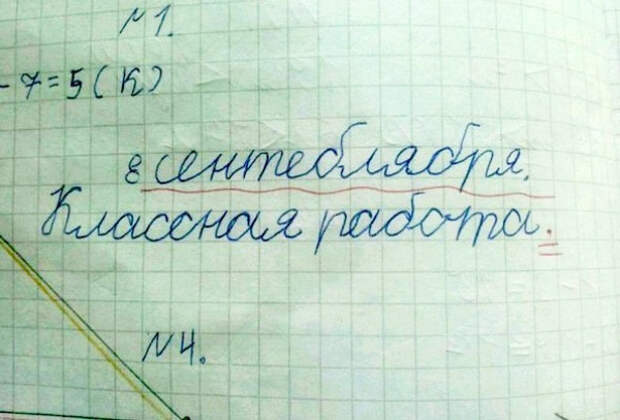 №1.
- 7=5(К)
8 сентеблября.
Классная работа.
№4.